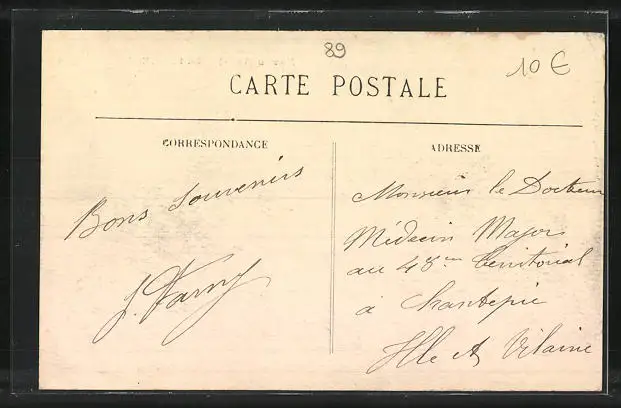 89
10 €
CARTE POSTALE
CORRESPONDANCE
Bons souvenirs
ADRESSE
Monsieur le Docteur
Médecin Major
au territorial
à Chantepie
Ille et Vilaine